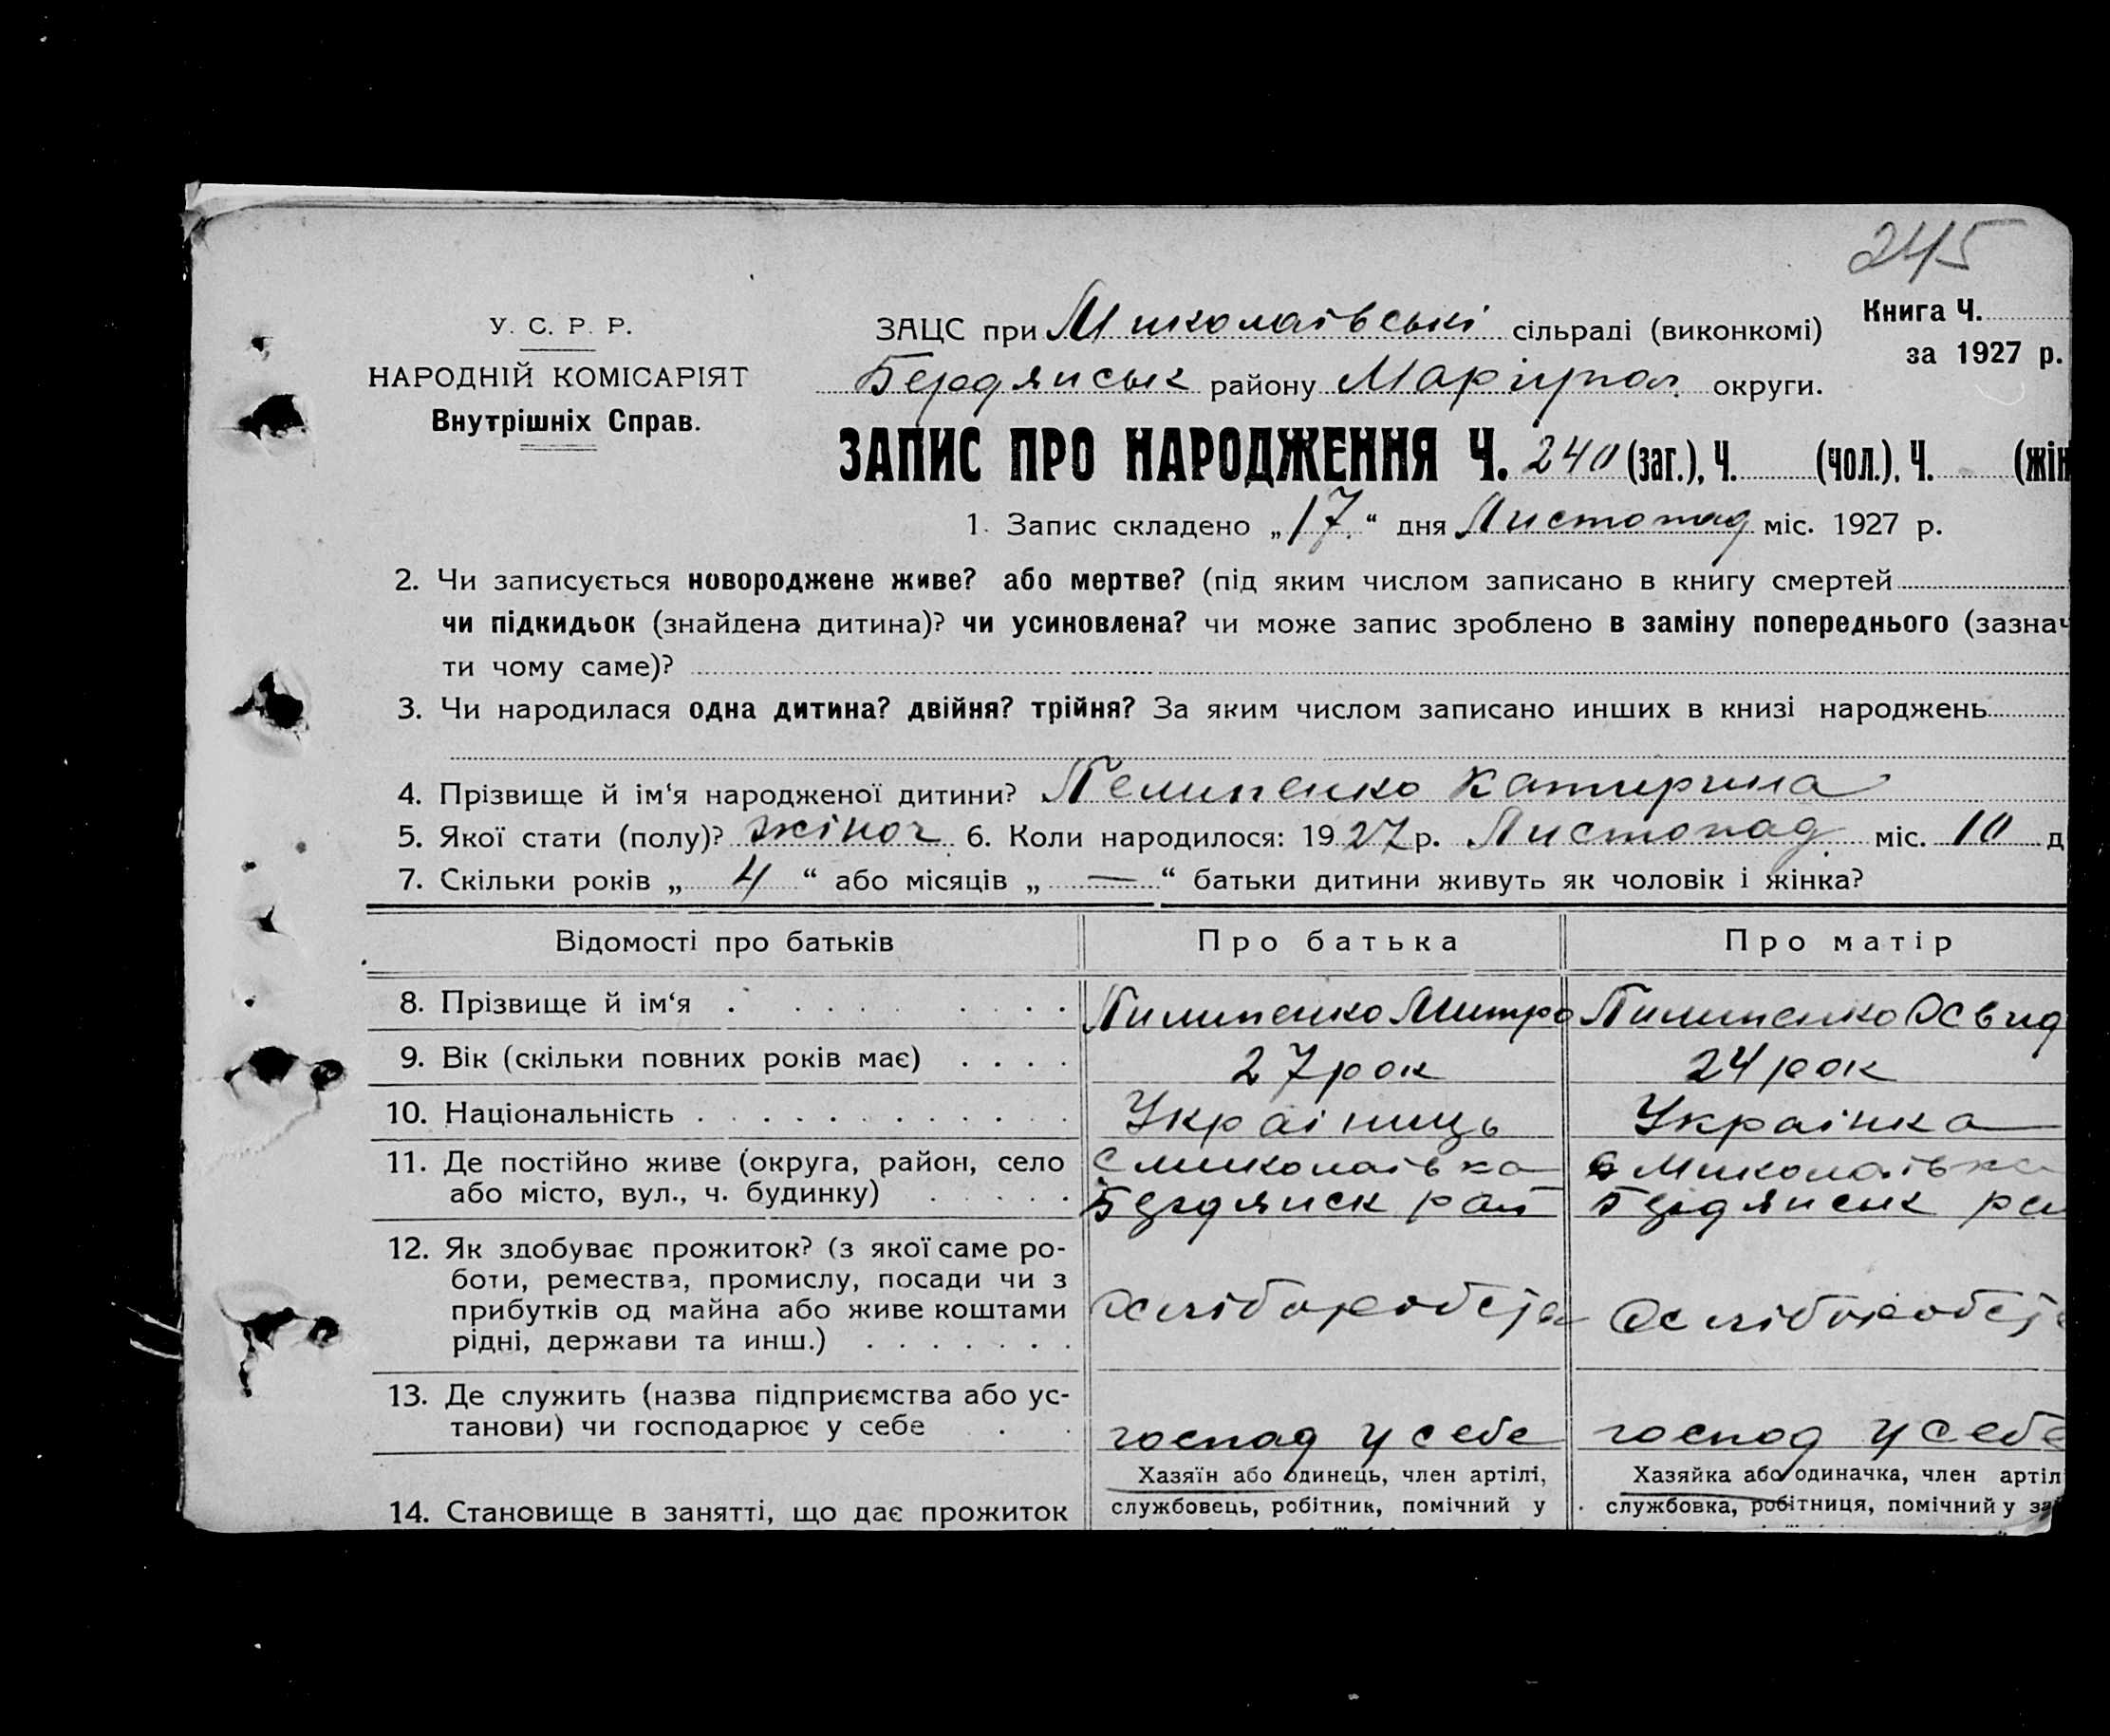 245
У. С. Р. Р.
НАРОДНІЙ КОМІСАРІЯТ
Внутрішніх Справ.
ЗАЦС при Миколаївські сільраді (виконкомі)
Книга Ч.
за 1927 р.
Бердянськ району Маріупол. округи.
ЗАПИС ПРО НАРОДЖЕННЯ Ч. 240 (заг.), Ч. (чол.), Ч. (жін
1. Запис складено „17“ дня Листопад міс. 1927 р.
2. Чи записується новороджене живе? або мертве? (під яким числом записано в книгу смертей
чи підкидьок (знайдена дитина)? чи усиновлена? чи може запис зроблено в заміну попереднього (зазнач
ти чому саме)?
3. Чи народилася одна дитина? двійня? трійня? За яким числом записано инших в книзі народжень
4. Прізвище й ім‘я народженої дитини? Пелипенко Катирина
5. Якої стати (полу)? жіноч 6. Коли народилося: 1927 р. Листопад міс. 10 д
7. Скільки років „ 4 “ або місяців „ — “ батьки дитини живуть як чоловік і жінка?
Відомості про батьків Про батька Про матір
8. Прізвище й ім‘я Пилипенко Митро Пилипенко
9. Вік (скільки повних років має) 27 рок 24 рок
10. Національність Українць Українка
11. Де постійно живе (округа, район, село с Миколаівка с Миколаівка
або місто, вул., ч. будинку) Бердянск рай Бердянськ
12. Як здобуває прожиток? (з якої саме ро-
боти, ремества, промислу, посади чи з
прибутків од майна або живе коштами
рідні, держави та инш.)
13. Де служить (назва підприємства або ус-
танови) чи господарює у себе господ у себе господ у себе
Хазяїн або одинець, член артілі, Хазяйка або одиначка, член артіл
14. Становище в занятті, що дає прожиток службовець, робітник, помічний у службовка, робітниця, помічний у за